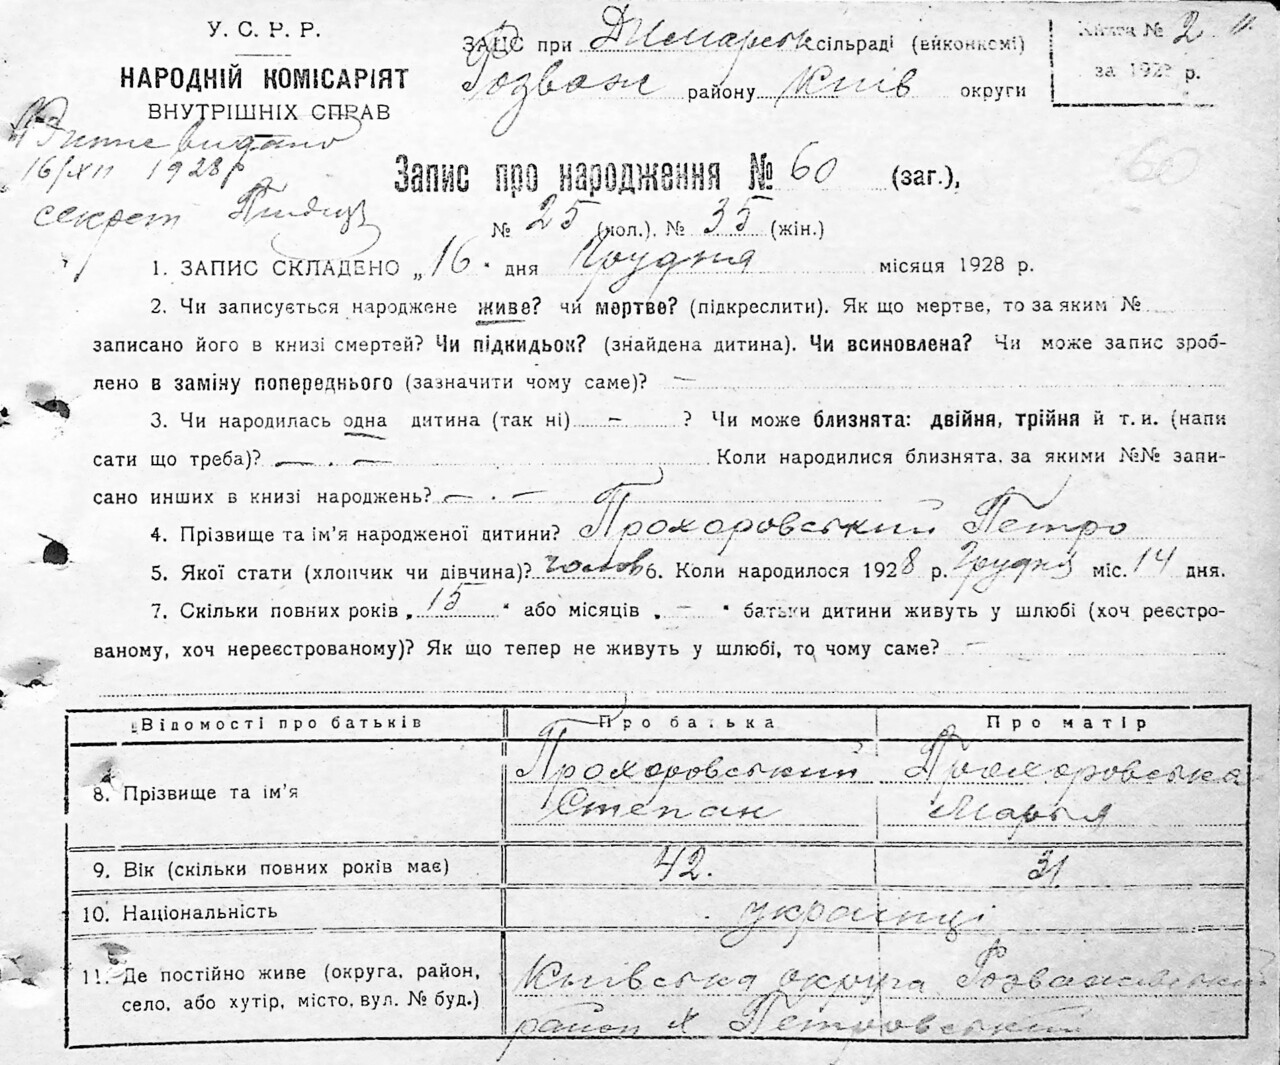 У. С. Р. Р.
НАРОДНІЙ КОМІСАРІЯТ
ВНУТРІШНІХ СПРАВ
ЗАЦС при Димарськ сільраді (виконкомі)
Розваж району Київ округи
Книга № 2
за 1928 р.
видано
16/XII 1928 р
секрет
Запис про народження № 60 (заг.),
60
№ 25 (чол.). № 35 (жін.)
1. ЗАПИС СКЛАДЕНО „16" дня Грудня місяця 1928 р.
2. Чи записується народжене живе? чи мертве? (підкреслити). Як що мертве, то за яким №
записано його в книзі смертей? Чи підкидьок? (знайдена дитина). Чи всиновлена? Чи може запис зроб-
лено в заміну попереднього (зазначити чому саме)? —
3. Чи народилась одна дитина (так ні) – ? Чи може близнята: двійня, трійня й т. и. (напи
сати що треба)? — . — Коли народилися близнята, за якими №№ запи-
сано инших в книзі народжень? — . —
4. Прізвище та ім'я народженої дитини? Прохоровський Петро
5. Якої стати (хлопчик чи дівчина)? чолов 6. Коли народилося 1928 р. Грудня міс. 14 дня.
7. Скільки повних років „15" або місяців „ — " батьки дитини живуть у шлюбі (хоч реєстро-
ваному, хоч нереєстрованому)? Як що тепер не живуть у шлюбі, то чому саме? —
Відомості про батьків Про батька Про матір
8. Прізвище та ім'я Прохоровський Степан Прохоровська Марья
9. Вік (скільки повних років має) 42. 31.
10. Національність українці
11. Де постійно живе (округа, район, Київська округа Розважівський
село, або хутір, місто, вул. № буд.) район х Петровський